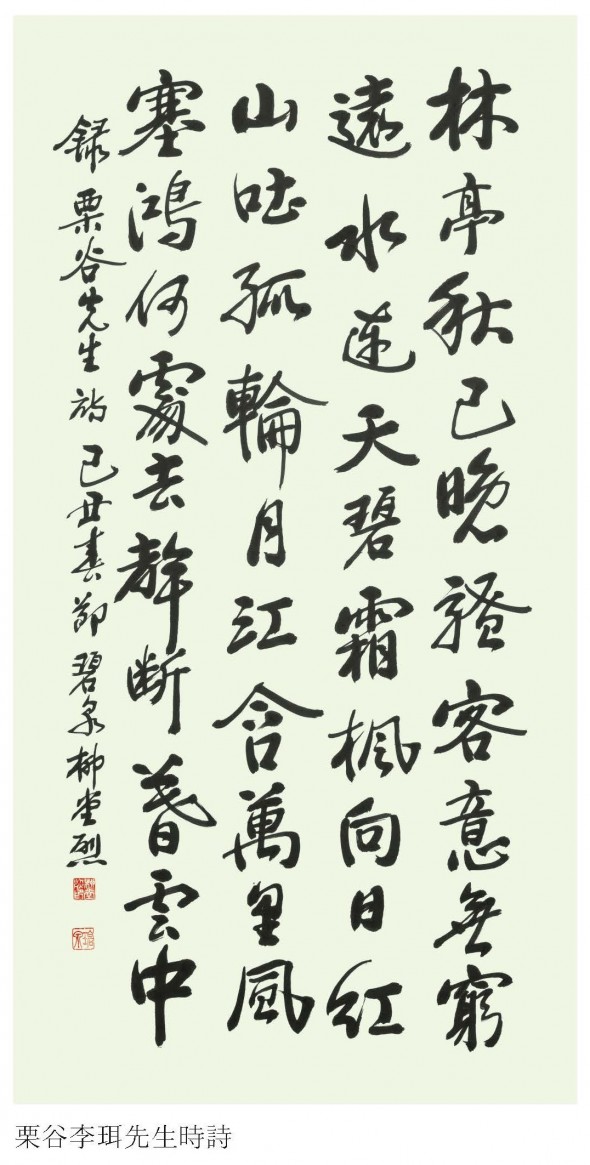 林亭秋已晚騷客意無窮
遠水連天碧霜楓向日紅
山吐孤輪月江含萬里風
塞鴻何處去聲斷暮雲中
錄栗谷先生詩己丑春節碧泉柳堂烈
栗谷李珥先生時詩